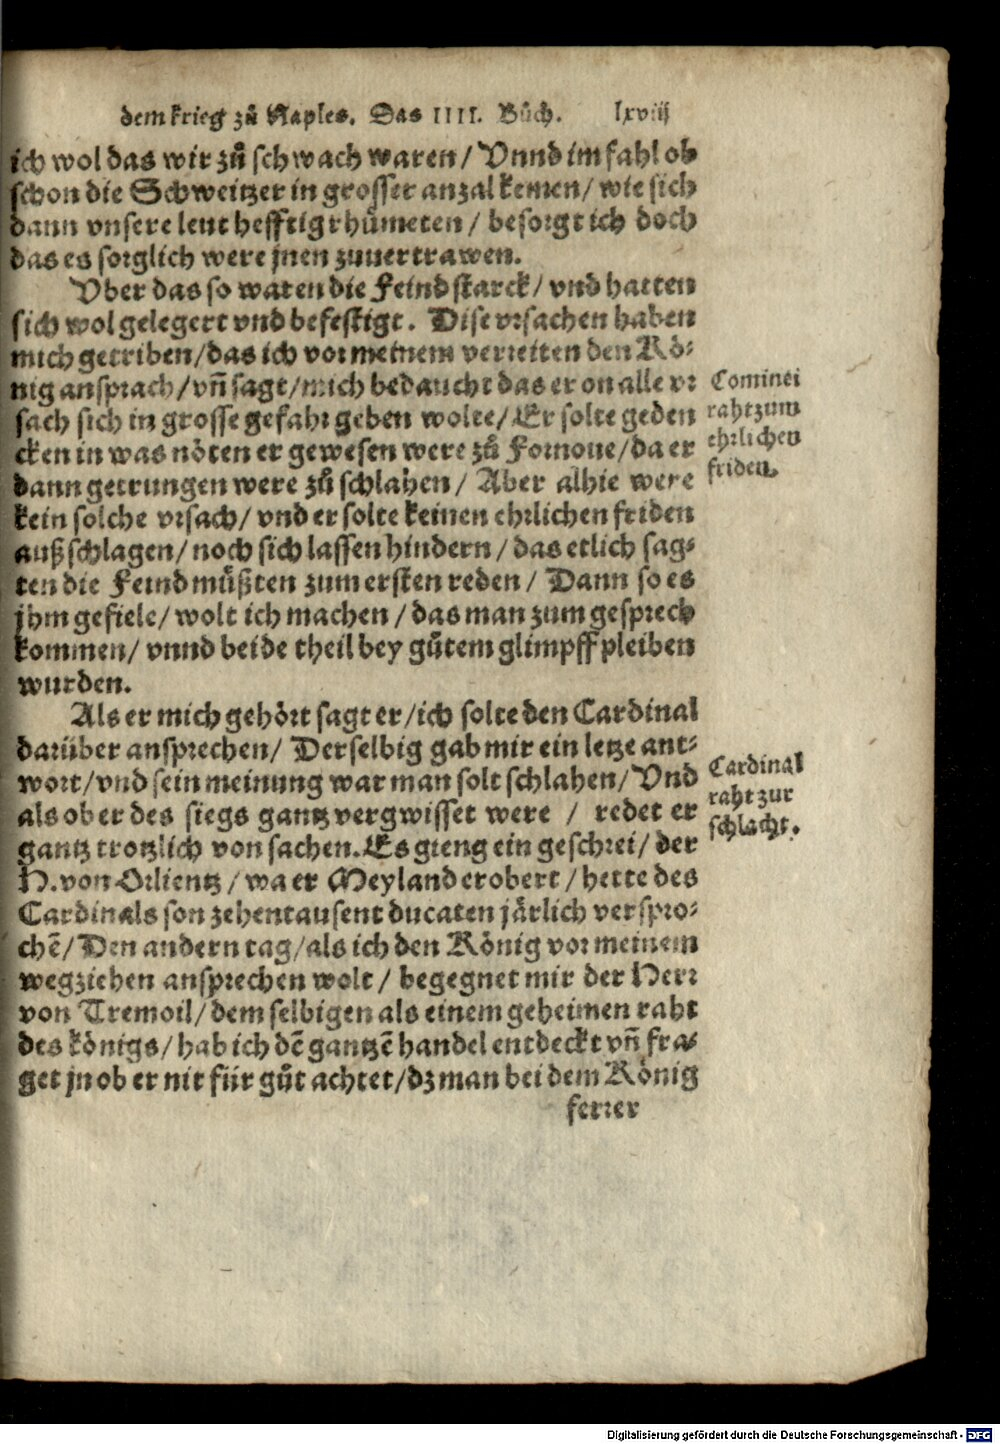 dem krieg zů Naples. Das IIII. Bůch. lxviij
ich wol das wir zů schwach waren / Vnnd im fahl ob
schon die Schweitzer in grosser anzal kemen / wie sich
dann vnsere leut hefftig rhůmeten / besorgt ich doch
das es sorglich were jnen zuuertrawen.
Vber das so waren die Feind starck / vnd hatten
sich wol gelegert vnd befestigt. Dise vrsachen haben
mich getriben / das ich vor meinem verreiten den Kö⸗
nig ansprach / vñ sagt / mich bedaucht das er on alle vr
sach sich in grosse gefahr geben wolte / Er solte geden
cken in was nöten er gewesen were zů Fornoue / da er
dann getrungen were zů schlahen / Aber alhie were
kein solche vrsach / vnd er solte keinen ehrlichen friden
außschlagen / noch sich lassen hindern / das etlich sag⸗
ten die Feind müßten zum ersten reden / Dann so es
jhm gefiele / wolt ich machen / das man zum gesprech
kommen / vnnd beide theil bey gůtem glimpff pleiben
wurden.
Cominei
raht zum
ehrlichen
friden.
Als er mich gehört sagt er / ich solte den Cardinal
darüber ansprechen / Derselbig gab mir ein letze ant⸗
wort / vnd sein meinung war man solt schlahen / Vnd
als ob er des siegs gantz vergwisset were / redet er
gantz trotzlich von sachen. Es gieng ein geschrei / der
H. von Orlientz / wa er Meyland erobert / hette des
Cardinals son zehentausent ducaten järlich verspro⸗
chẽ / Den andern tag / als ich den König vor meinem
wegziehen ansprechen wolt / begegnet mir der Herr
von Tremoil / dem selbigen als einem geheimen raht
des königs / hab ich dẽ gantzẽ handel entdeckt vñ fra⸗
get jn ob er nit für gůt achtet / dz man bei dem König
Cardinal
raht zur
schlacht.
ferrer
Digitalisierung gefördert durch die Deutsche Forschungsgemeinschaft - DFG